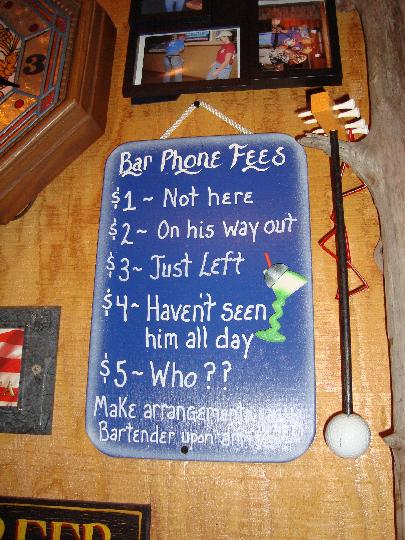 3
Bar Phone Fees
$1 ~ Not here
$2 ~ On his way out
$3 ~ Just Left
$4 ~ Haven't seen
him all day
$5 ~ Who ??
Make arrangements
Bartender upon
BEER